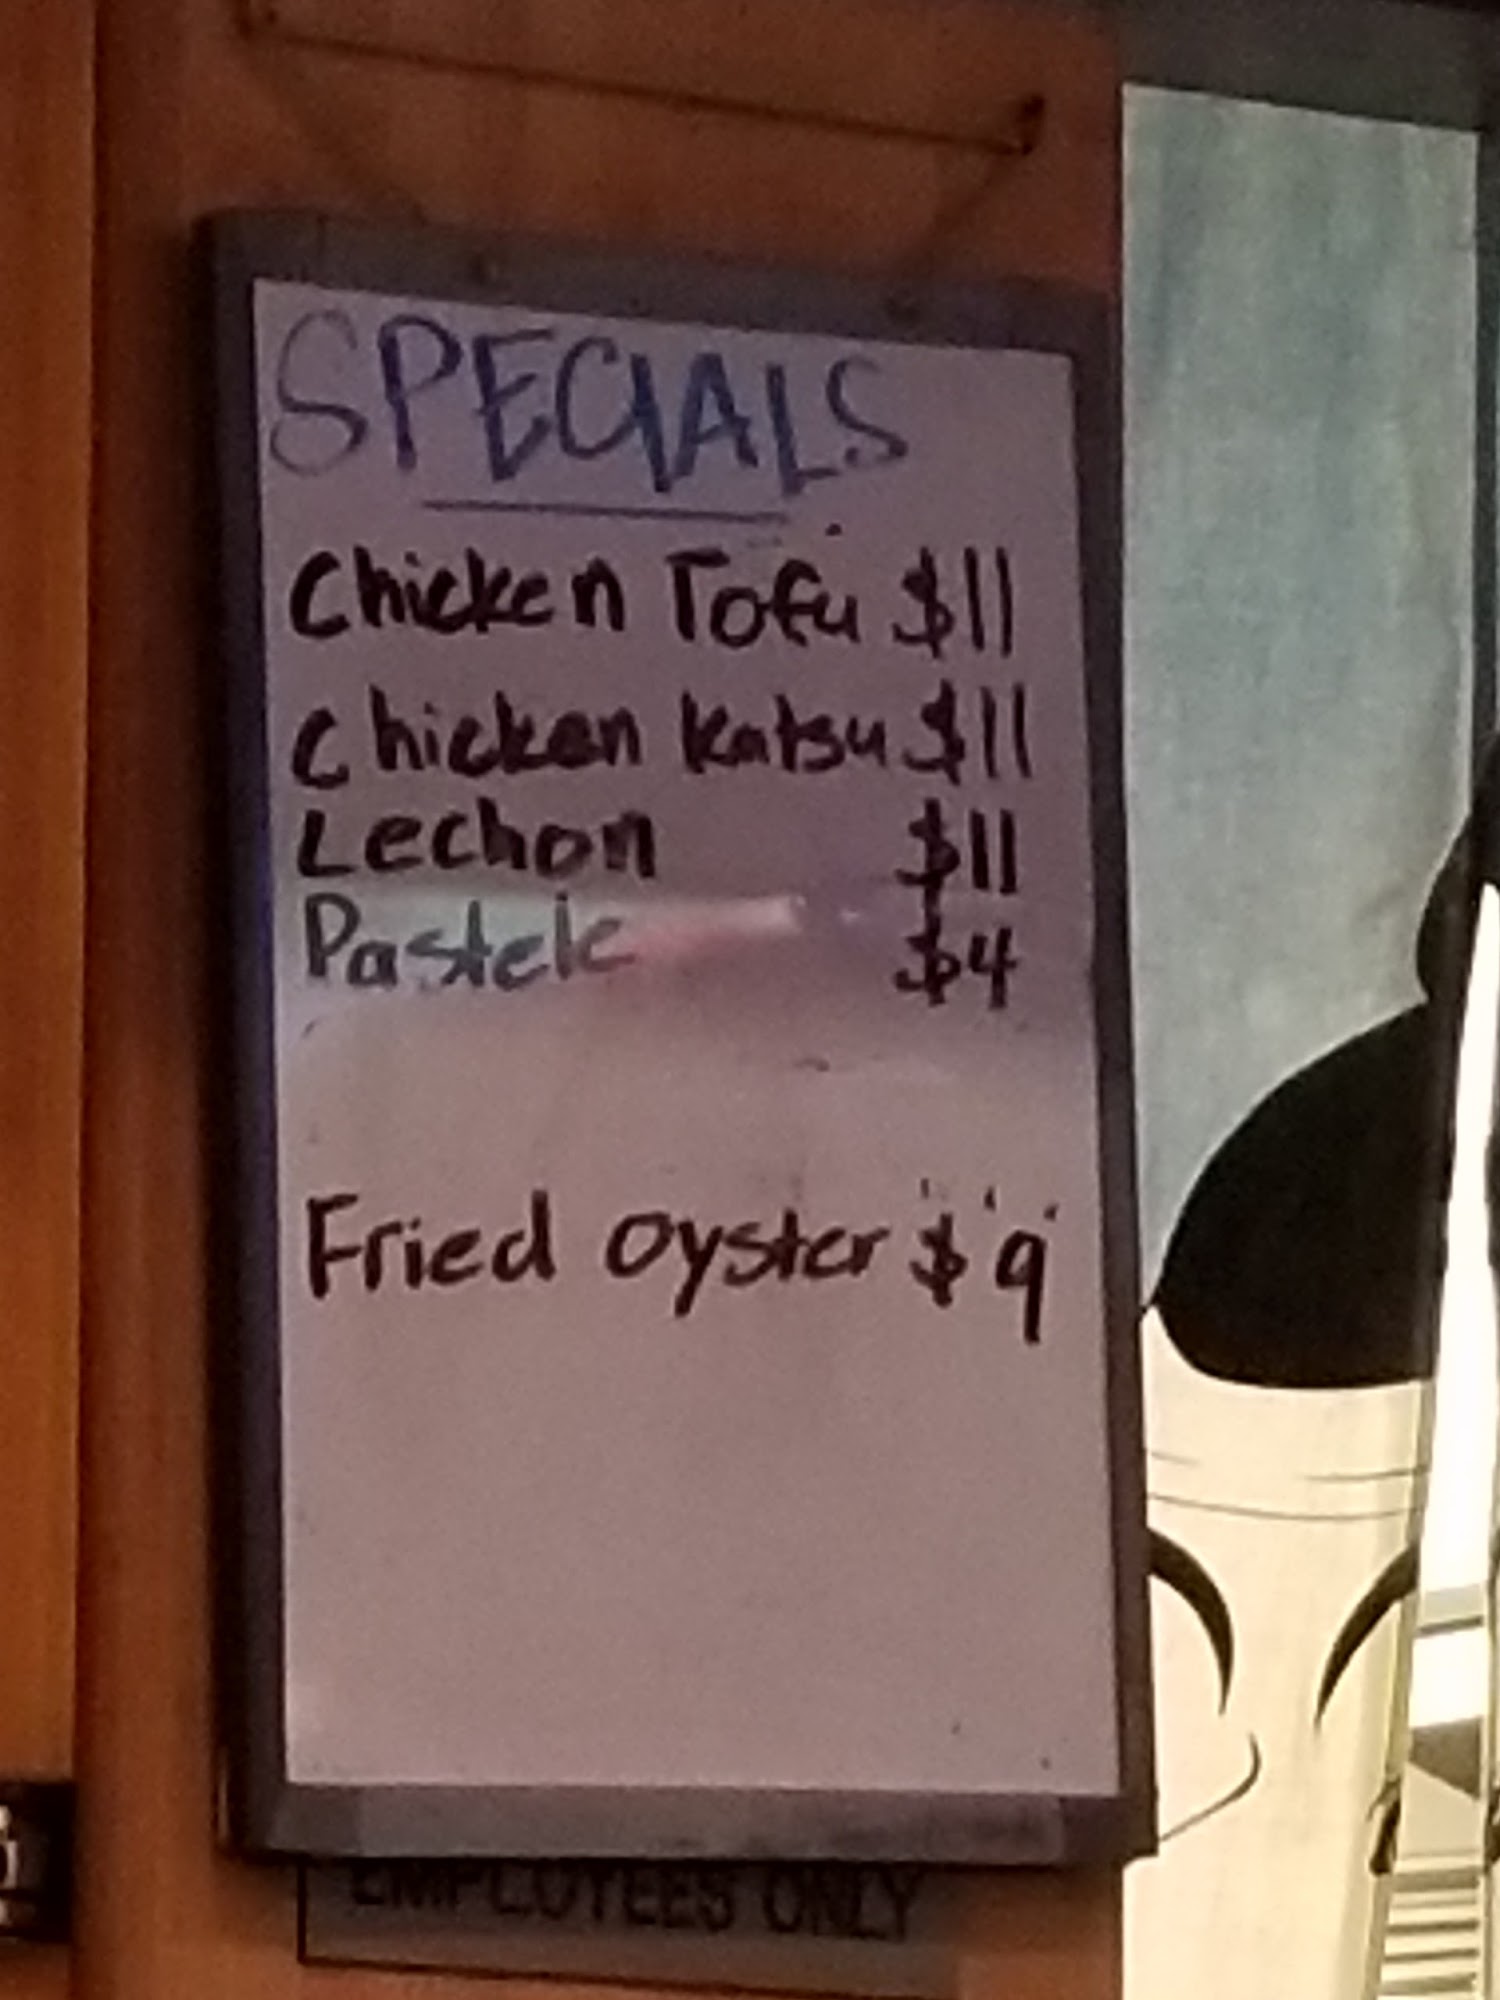 SPECIALS
Chicken Tofu $11
Chicken Katsu $11
Lechon $11
Pastele $4
Fried Oyster $9
EMPLOYEES ONLY